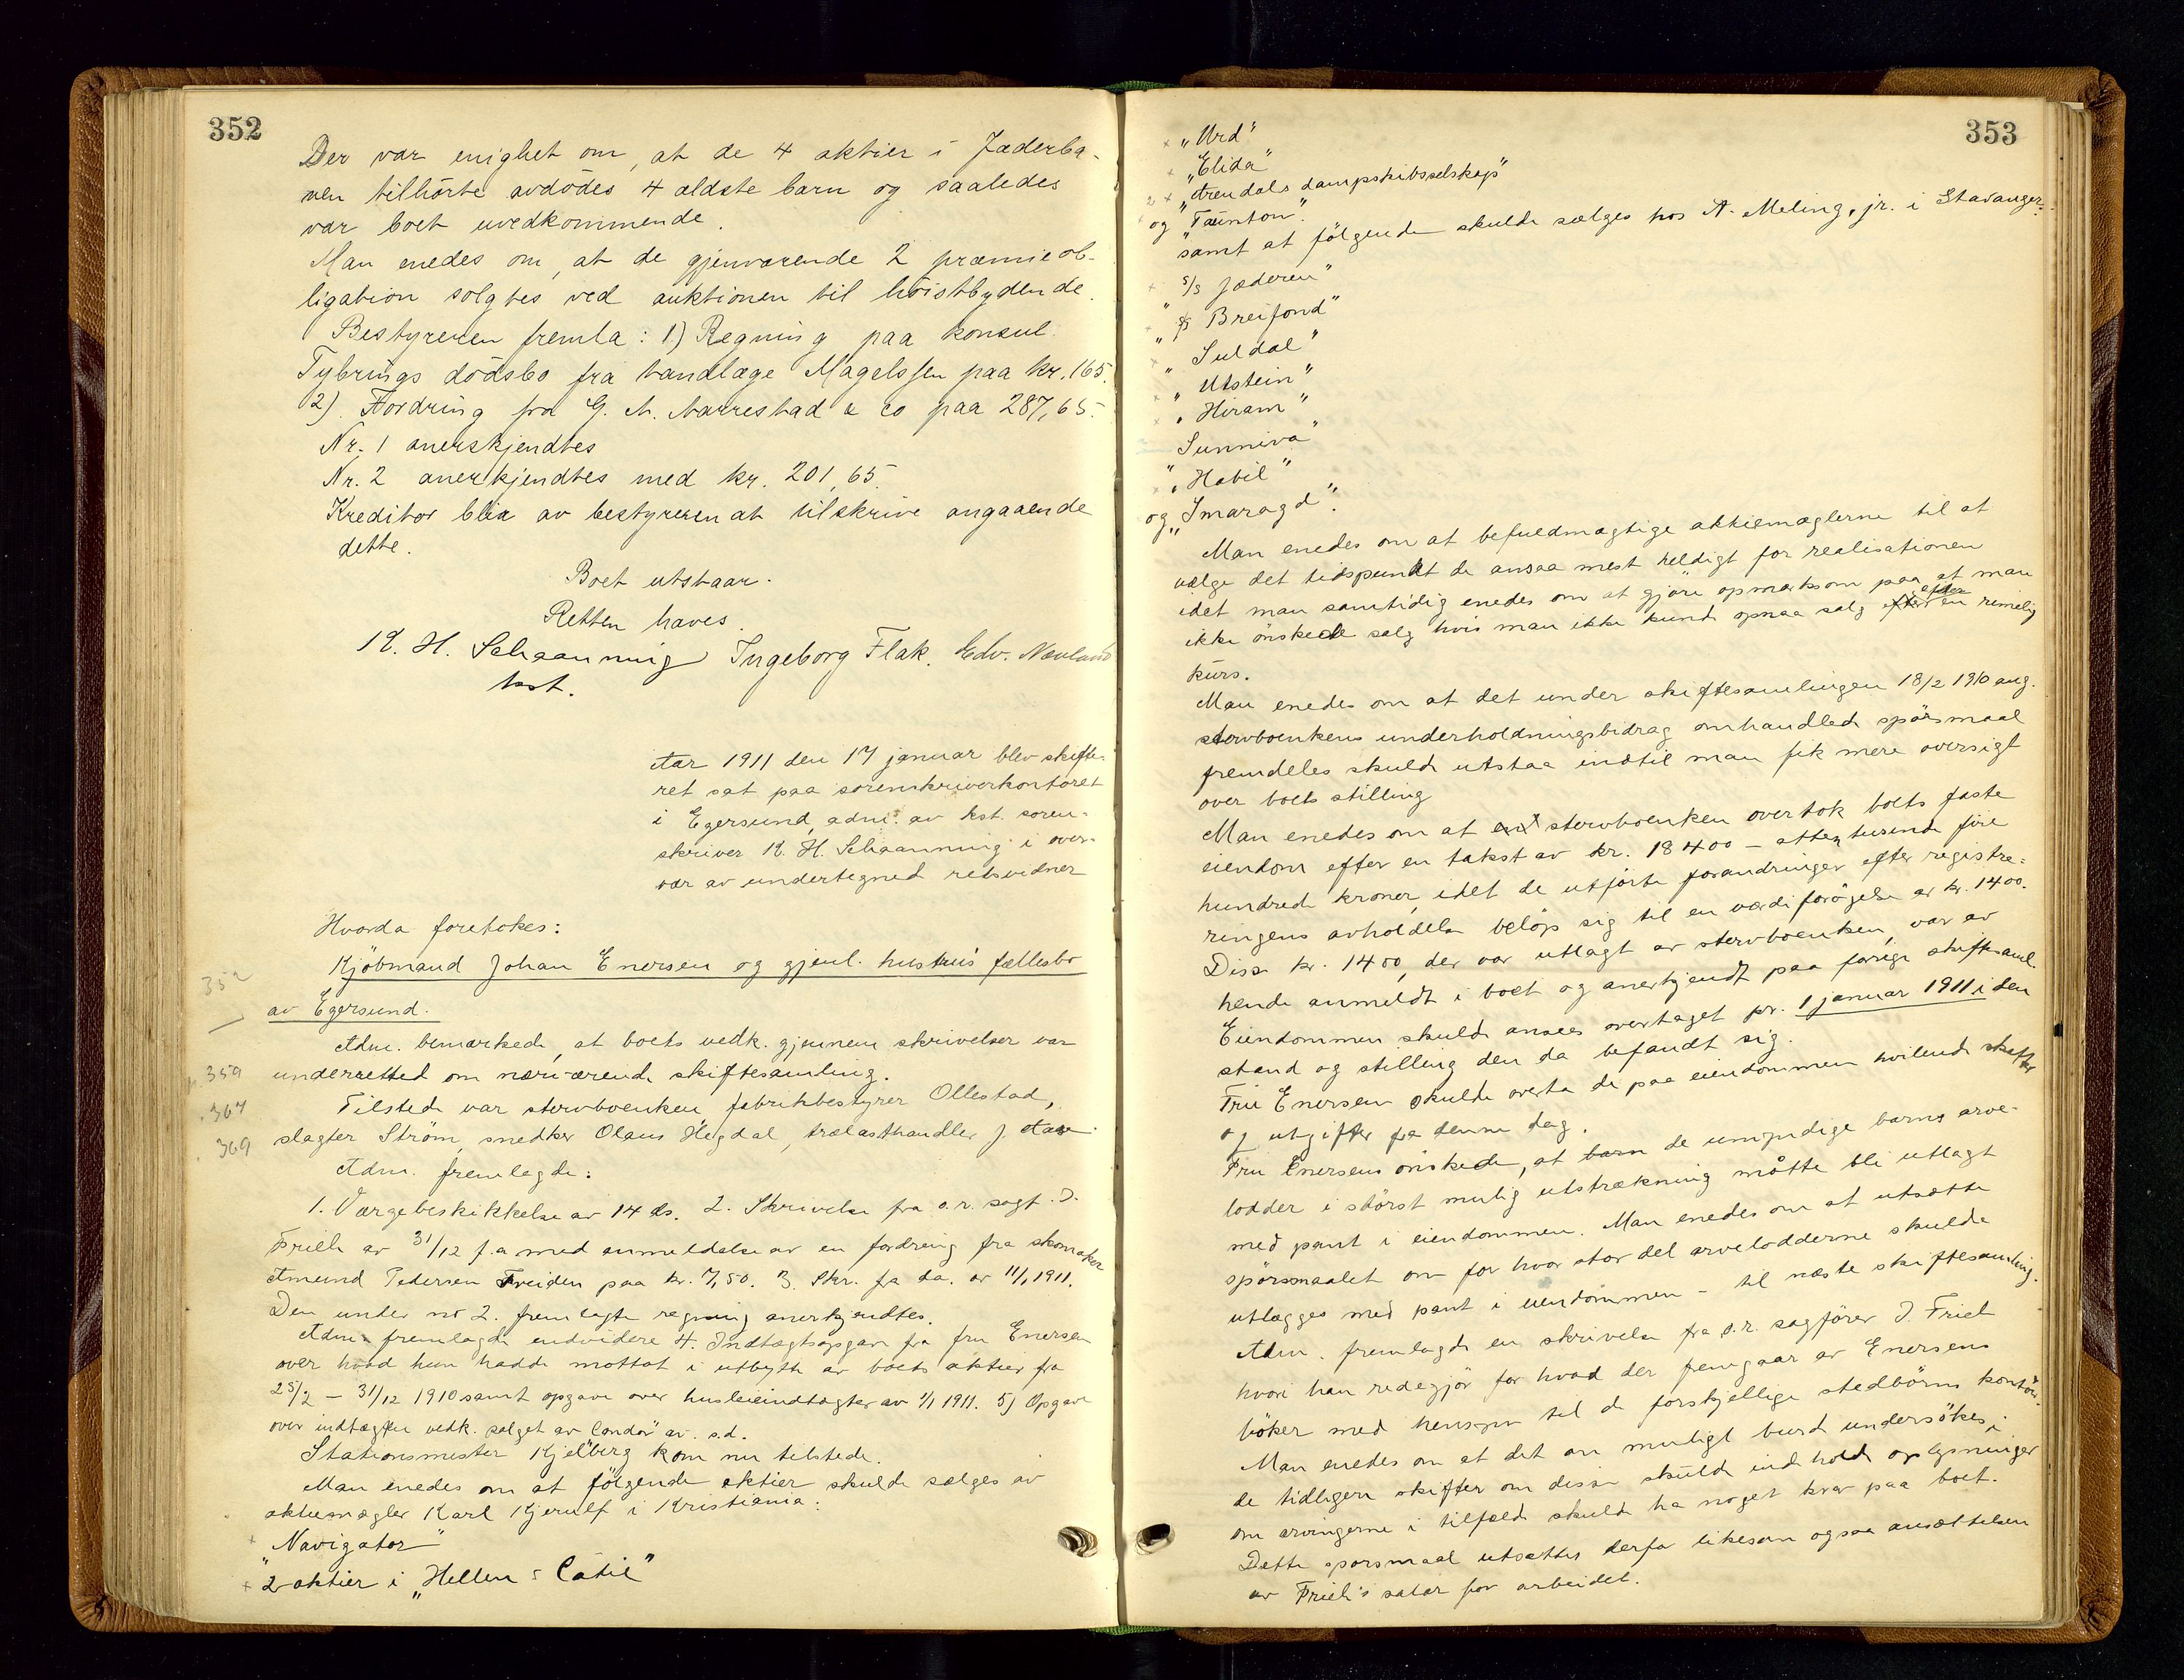 352
Der var enighet om, at de 4 aktier i Jæderba-
nen tilhörte avdödes 4 ældste barn og saaledes
var boet uvedkommende.
Man enedes om, at de gjenværende 2 præmieob-
ligation solgtes ved auktionen til höistbydende.
Bestyreren fremla: 1) Regning paa konsul
Tybrings dödsbo fra tandlæge Magelssen paa kr. 165.
2). Fordring fra G. M. Narrestad & co paa 287,65.
Nr. 1 anerskjendtes
Nr. 2 anerkjendtes med kr. 201,65.
Kreditor blir av bestyreren at tilskrive angaaende
dette.
Boet utstaar.
Retten hæves.
K. H. Schaanning Ingeborg Flak. Edv. Nævland
kst.
Aar 1911 den 17 januar blev skifte-
ret sat paa sorenskriverkontoret
i Egersund, adm. av kst. soren-
skriver K. H. Schaanning i over-
vær av undertegned retsvidner
Hvorda foretokes:
Kjöbmand Johan Enersen og gjenl. hustrus fællesbo
352
av Egersund.
Adm. bemærkede, at boets vedk. gjennem skrivelser var
359
underretted om nærværende skiftesamling.
364
Tilstede var stervboenken, fabrikbestyrer Ollestad,
369
slagter Ström, snedker Olaus Hegdal, trælasthandler J. Aase.
Adm. fremlagde:
1. Værgebeskikkelse av 14 ds. 2. Skrivelse fra o.r. sagf. D.
Frich av 31/12 f.a med anmeldelse av en fordring fra skomaker
Amund Pedersen Freiden paa kr. 7,50. 3. Skr. fra da. av 11/1 1911.
Den under no 2. fremlagte regning anerkjendtes.
Adm. fremlagde endvidere 4. Indtægtsopgave fra fru Enersen
over hvad hun hadde mottat i utbytte av boets aktier fra
25/2 - 31/12 1910 samt opgave over husleieindtægter av 1/1 1911. 5) Opgave
over indtægten vedk. salget av "Condor" av s.d.
Stationsmester Kjelberg kom nu tilstede.
Man enedes om at fölgende aktier skulde sælges av
aktiemægler Karl Kjerulf i Kristiania:
+ "Navigator"
+ 2 aktier i "Hellen = Catie"
353
+ "Urd"
+ "Elida"
2 + "Arendals dampskibsselskap"
og "Taunton".
samt at fölgende skulde sælges hos A. Meling, jr. i Stavanger:
+ s/s Jæderen"
+ " s/s Breifond"
+ " Suldal"
+ " Utstein"
+ " Hiram"
+ Sunniva"
+ " Habil"
og "Smaragd".
Man enedes om at befuldmægtige aktiemæglerne til at
vælge det tidspunkt de ansaa mest heldigt for realisationen
idet man samtidig enedes om at gjöre opmerksom paa, at man
ikke önskede salg hvis man ikke kunde opnaa salg efter en rimelig
kurs.
Man enedes om at det under skiftesamlingen 18/2 1910 ang.
stervboenkens underholdningsbidrag omhandlede spörsmaal
fremdeles skulde utstaa indtil man fik mere oversigt
over boets stilling
Man enedes om at stervboenken overtok boets faste
eiendom efter en takst av kr. 18400 - atten tusende fire
hundrede kroner, idet de utförte forandringer efter registre-
ringens avholdelse belöp sig til en værdiforögelse av kr. 1400.
Disse kr. 1400, der var utlagt av stervboenken, var av
hende anmeldt i boet og anerkjendt paa forrige skiftesaml.
Eiendommen skulde ansees overtaget pr. 1 januar 1911 i den
stand og stilling den da befandt sig.
Fru Enersen skulde overta de paa eiendommen hvilende skatter
og utgifter fra denne dag.
Fru Enersens önskede, at de umyndige barns arve-
lodder i störst mulig utstrækning måtte bli utlagt
med pant i eiendommen. Man enedes om at utsætte
spörsmaalet om for hvor stor del arvelodderne skulde
utlægges med pant i eiendommen - til næste skiftesamling.
Adm. fremlagde en skrivelse fra o.r. sagförer D. Frich
hvori han redegjör for hvad der fremgaar av Enersens
böker med hensyn til de forskjellige stedbörns kontör.
Man enedes om at det om muligt burde undersökes i
de tidligere skifter om disse skulde indholde oplysninger
om arvingerne i tilfælde skulde ha noget krav paa boet.
Dette spörsmaal utsættes derfor likesom ogsaa ansættelsen
av Frich's salær for arbeidet.